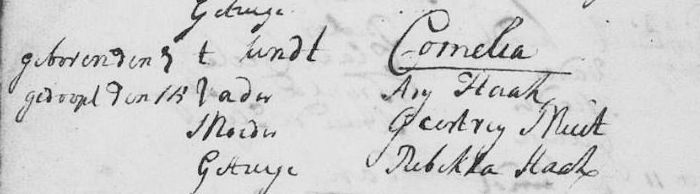 Getuige
geboren den 3 t kindt Cornelia
gedoopt den 13 Vader Ary Haak
Moeder Geertruy
Getuige Rebekka Haak